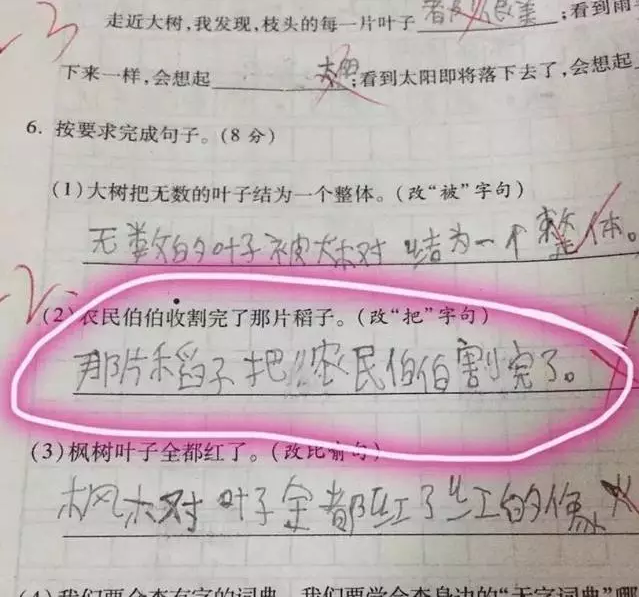 走近大树,我发现,枝头的每一片叶子 ;看到雨
下来一样,会想起 大树 ;看到太阳即将落下去了,会想起
6. 按要求完成句子。(8 分)
(1)大树把无数的叶子结为一个整体。(改“被”字句)
无数的叶子被大树结为一个整体。
(2)农民伯伯收割完了那片稻子。(改“把”字句)
那片稻子把农民伯伯割完了。
(3)枫树叶子全都红了。(改比喻句)
枫树叶子全都红了红的像火
(4)我们要会查有字的词典,我们要学会查身边的“无字词典”哪